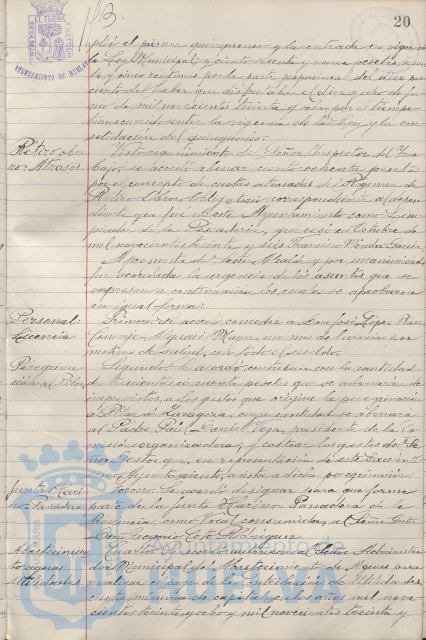 20
AYUNTAMIENTO DE HUELVA
plió el primer quinquenio y la entrada en vigor de
la Ley Municipal, y ciento sesenta y nueve pesetas
y cinco centimos por la parte proporcional del diez por
ciento del haber que disfrutaba el
de mil novecientos treinta y seis, por el tiempo
transcurrido entre la vigencia de la Ley y la con
solidación del quinquenio.
Retiro obre
ro: Atrasos.
Visto requerimiento del Señor Inspector del Tra
bajo, se acordó abonar ciento ochenta pesetas
por el concepto de cuotas atrasadas del Régimen de
Retiro Obrero Obligatorio correspondiente al depen
diente que fué de este Ayuntamiento como Lim
piador de la Pescadería, que cesó en Octubre de
mil novecientos treinta y seis Francisco Méndez García.
A propuesta del Señor Alcalde y por unanimidad
fué acordada la urgencia de los asuntos que se
expresan a continuación los cuales se aprobaron
en igual forma:
Personal:
Licencia.
Primero: Se acordó conceder a Don José López
Conserje-Alguacil Mayor, un mes de licencia por
motivos de salud, con todo el sueldo.
Peregrina
ción al Pilar.
Segundo: Se acordó contribuir con la cantidad
de doscientas cincuenta pesetas que se abonarán de
imprevistos, a los gastos que origine la peregrinación
al Pilar de Zaragoza, cuya cantidad se abonará
al Padre Paúl Daniel Vega, presidente de la Co
misión organizadora; y costear los gastos del Se
ñor Gestor que, en representación de este Excelentí
simo Ayuntamiento, asista a dicha peregrinación.
Junta Hari
no-Panadera
Tercero: Se acordó designar para que forme
parte de la Junta Harino Panadera de la
Provincia, como Vocal consumidor, al Señor Gestor
Don Socorro Coto Rodríguez.
Abastecimiento
de aguas:
Utilidades
Cuarto: Se acordó autorizar al Señor Administra
dor Municipal de Abastecimiento de Aguas para
realizar el pago de la Contribución de Utilidades
cuota mínima de capital, de los años mil nove
cientos treinta y ocho y mil novecientos treinta y
Ayuntamiento de